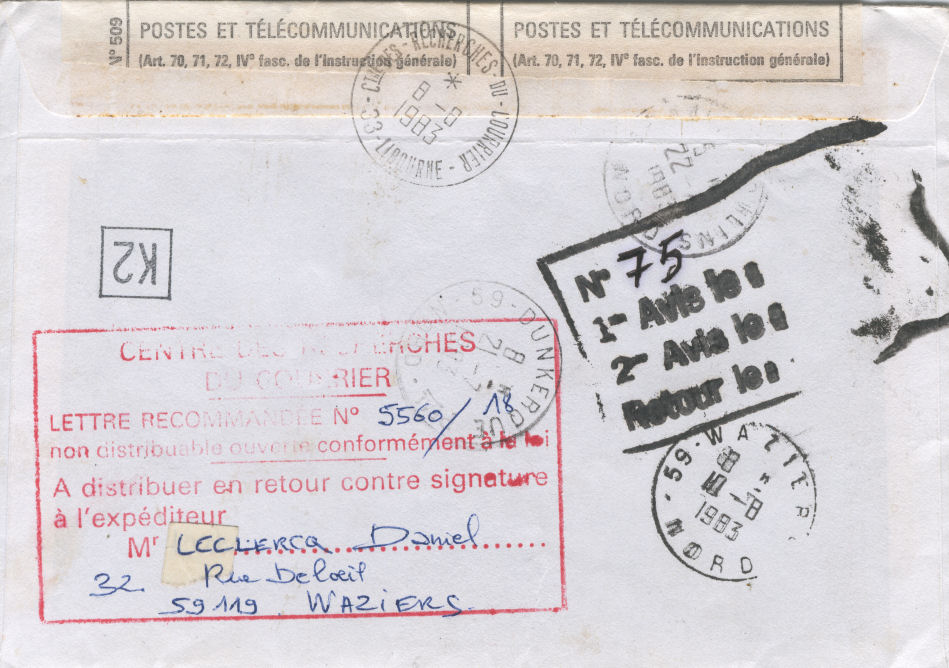 N° 509
POSTES ET TÉLÉCOMMUNICATIONS
(Art. 70, 71, 72, IVe fasc. de l'Instruction générale)
POSTES ET TÉLÉCOMMUNICATIONS
(Art. 70, 71, 72, IVe fasc. de l'Instruction générale)
RECHERCHES DU COURRIER
8 *
8 -8
1983
33 - LIBOURNE
22
1983
NORD
K2
N° 75
1er Avis le :
2e Avis le :
Retour le :
59 - DUNKERQUE
8
21 -7
CENTRE DES RECHERCHES
DU COURRIER
LETTRE RECOMMANDÉE N° 5560/18
non distribuable ouverte conformément à la loi
A distribuer en retour contre signature
à l'expéditeur
Mr LECLERCQ Daniel
32 Rue Deloeil
59119 WAZIERS
59 - WAZIER
8 *
10 -8
1983
NORD